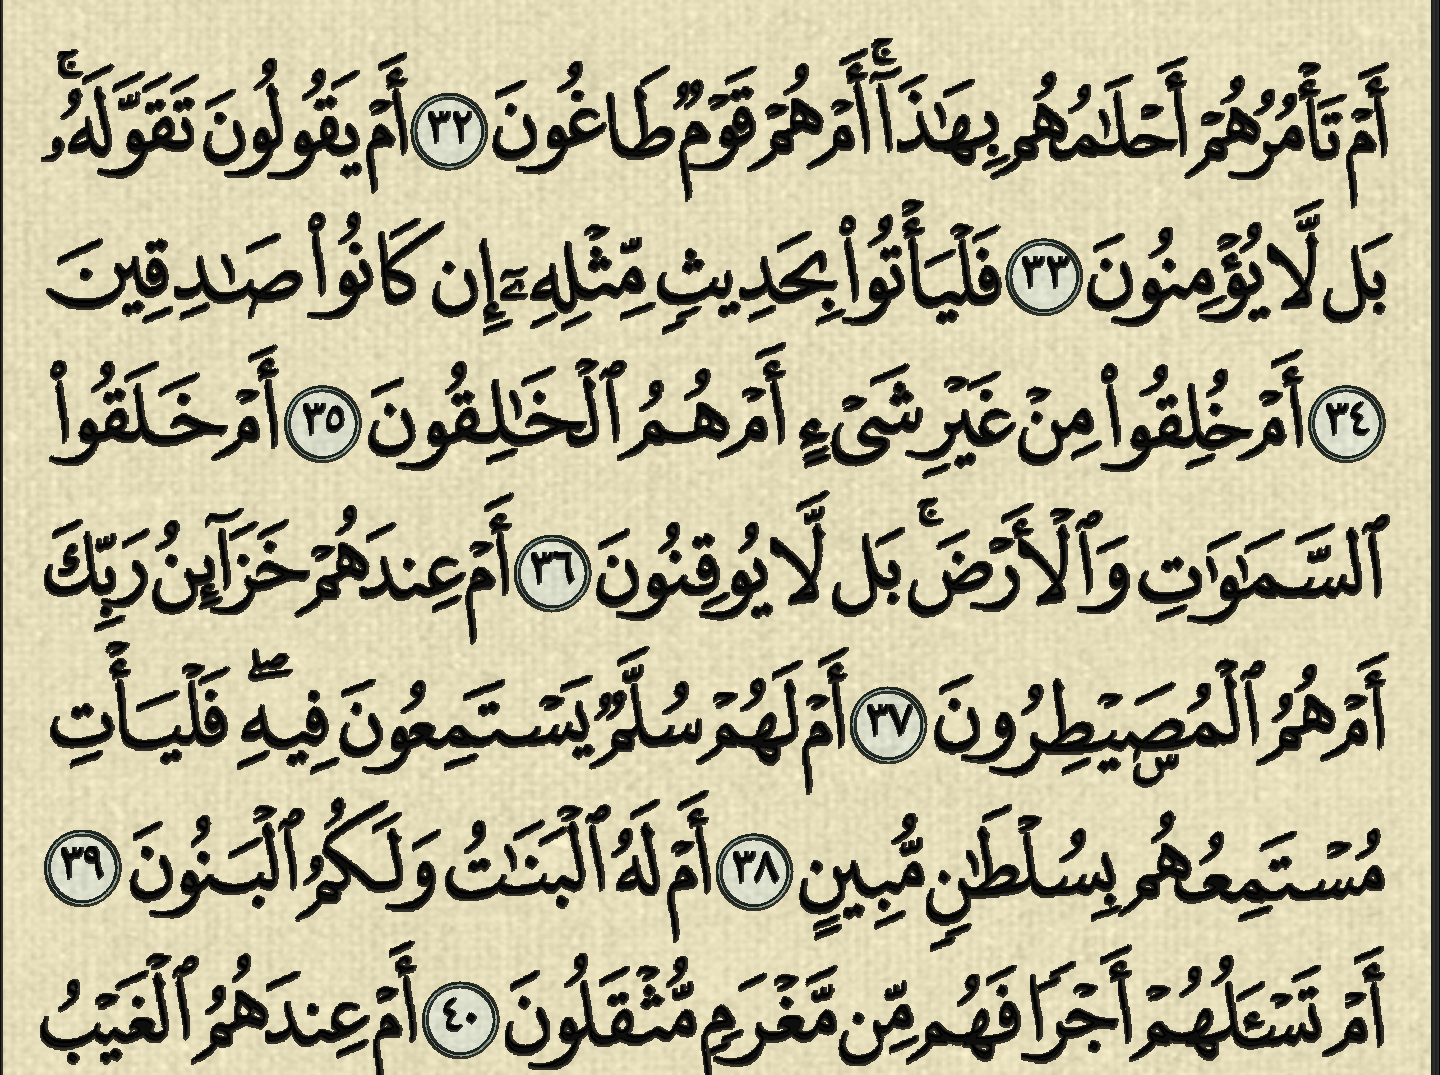 أَمْ تَأْمُرُهُمْ أَحْلَـٰمُهُم بِهَـٰذَآ ۚ أَمْ هُمْ قَوْمٌ طَاغُونَ ٣٢ أَمْ يَقُولُونَ تَقَوَّلَهُۥ ۚ
بَل لَّا يُؤْمِنُونَ ٣٣ فَلْيَأْتُوا۟ بِحَدِيثٍ مِّثْلِهِۦٓ إِن كَانُوا۟ صَـٰدِقِينَ
٣٤ أَمْ خُلِقُوا۟ مِنْ غَيْرِ شَىْءٍ أَمْ هُمُ ٱلْخَـٰلِقُونَ ٣٥ أَمْ خَلَقُوا۟
ٱلسَّمَـٰوَٰتِ وَٱلْأَرْضَ ۚ بَل لَّا يُوقِنُونَ ٣٦ أَمْ عِندَهُمْ خَزَآئِنُ رَبِّكَ
أَمْ هُمُ ٱلْمُصَۣيْطِرُونَ ٣٧ أَمْ لَهُمْ سُلَّمٌ يَسْتَمِعُونَ فِيهِ ۖ فَلْيَأْتِ
مُسْتَمِعُهُم بِسُلْطَـٰنٍ مُّبِينٍ ٣٨ أَمْ لَهُ ٱلْبَنَـٰتُ وَلَكُمُ ٱلْبَنُونَ ٣٩
أَمْ تَسْـَٔلُهُمْ أَجْرًا فَهُم مِّن مَّغْرَمٍ مُّثْقَلُونَ ٤٠ أَمْ عِندَهُمُ ٱلْغَيْبُ